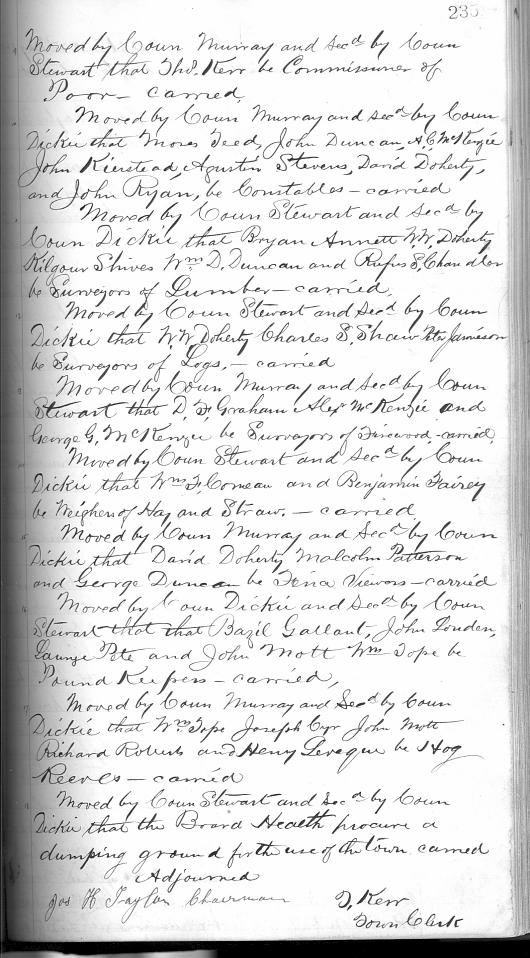 235
Moved by Coun Murray and Secd by Coun
Stewart that Thos. Kerr be Commissioner of
Poor — carried
Moved by Coun Murray and Secd by Coun
Dickie that Moses Teed, John Duncan, A.C. McKenzie
John Kierstead, Agustin Stevens, David Doherty,
and John Ryan, be Constables — carried
Moved by Coun Stewart and Secd by
Coun Dickie that Bryan Annett W.W. Doherty
Kilgour Shives Wm D. Duncan and Rufus S. Chandler
be Surveyors of Lumber — carried,
Moved by Coun Stewart and Secd by Coun
Dickie that W.W. Doherty Charles S. Shaw Peter Jamieson
be Surveyors of Logs, — carried
Moved by Coun Murray and Secd by Coun
Stewart that D. F. Graham Alex McKenzie and
George G. McKenzie be Surveyors of Firewood, carried,
Moved by Coun Stewart and Secd by Coun
Dickie that Wm F. Comeau and Benjamin Fairey
be Weigher of Hay and Straw. — carried
Moved by Coun Murray and Secd by Coun
Dickie that David Doherty Malcolm Patterson
and George Duncan be Fence Viewers — carried
Moved by Coun Dickie and Secd by Coun
Stewart that that Bazil Gallant, John Louden,
Pete and John Mott Wm Tope be
Pound Keepers — carried,
Moved by Coun Murray and Secd by Coun
Dickie that Wm Tope Joseph Cyr John Mott
Richard Roberts and Henry Leveque be Hog
Reeves — carried
Moved by Coun Stewart and Secd by Coun
Dickie that the Board Health procure a
dumping ground for the use of the town carried
Adjourned
Jos H Taylor Chairman
T. Kerr
Town Clerk